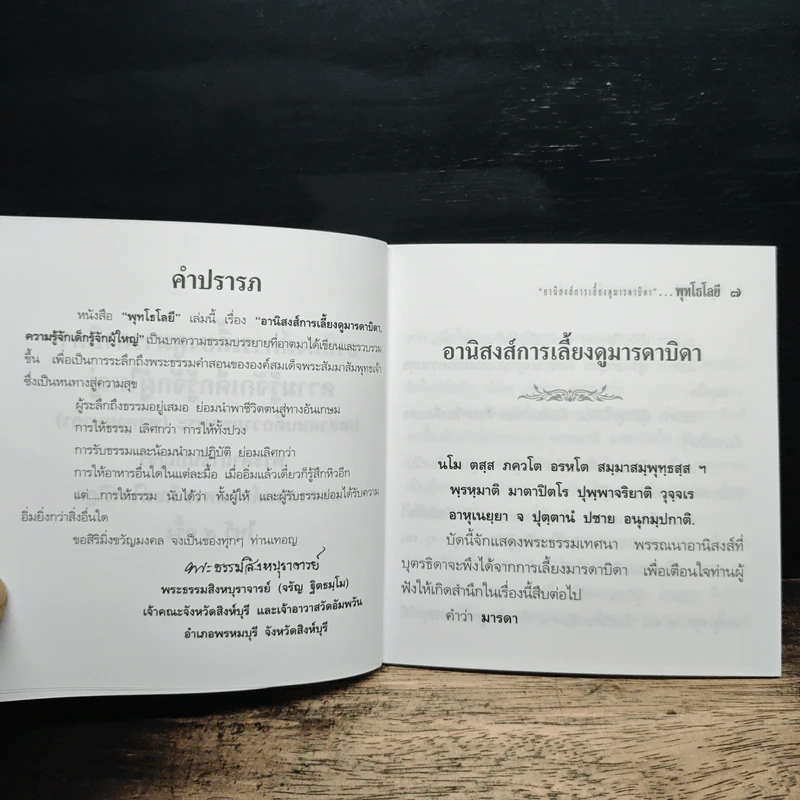 คำปรารภ
หนังสือ "พุทโธโลยี" เล่มนี้ เรื่อง "อานิสงส์การเลี้ยงดูมารดาบิดา,
ความรู้จักเด็กรู้จักผู้ใหญ่" เป็นบทความธรรมบรรยายที่อาตมาได้เขียนและรวบรวม
ขึ้น เพื่อเป็นการระลึกถึงพระธรรมคำสอนขององค์สมเด็จพระสัมมาสัมพุทธเจ้า
ซึ่งเป็นหนทางสู่ความสุข
ผู้ระลึกถึงธรรมอยู่เสมอ ย่อมนำพาชีวิตตนสู่ทางอันเกษม
การให้ธรรม เลิศกว่า การให้ทั้งปวง
การรับธรรมและน้อมนำมาปฏิบัติ ย่อมเลิศกว่า
การให้อาหารอื่นใดในแต่ละมื้อ เมื่ออิ่มแล้วเดี๋ยวก็รู้สึกหิวอีก
แต่....การให้ธรรม นับได้ว่า ทั้งผู้ให้ และผู้รับธรรมย่อมได้รับความ
อิ่มยิ่งกว่าสิ่งอื่นใด
ขอสิริมิ่งขวัญมงคล จงเป็นของทุกๆ ท่านเทอญ
พระธรรมสิงหบุราจารย์
พระธรรมสิงหบุราจารย์ (จรัญ ฐิตธมฺโม)
เจ้าคณะจังหวัดสิงห์บุรี และเจ้าอาวาสวัดอัมพวัน
อำเภอพรหมบุรี จังหวัดสิงห์บุรี
"อานิสงส์การเลี้ยงดูมารดาบิดา"...พุทโธโลยี ๗
อานิสงส์การเลี้ยงดูมารดาบิดา
นโม ตสฺส ภควโต อรหโต สมฺมาสมฺพุทฺธสฺส ฯ
พฺรหฺมาติ มาตาปิตโร ปุพฺพาจริยาติ วุจฺจเร
อาหุเนยฺยา จ ปุตฺตานํ ปชาย อนุกมฺปกาติ.
บัดนี้จักแสดงพระธรรมเทศนา พรรณนาอานิสงส์ที่
บุตรธิดาจะพึงได้จากการเลี้ยงมารดาบิดา เพื่อเตือนใจท่านผู้
ฟังให้เกิดสำนึกในเรื่องนี้สืบต่อไป
คำว่า มารดา